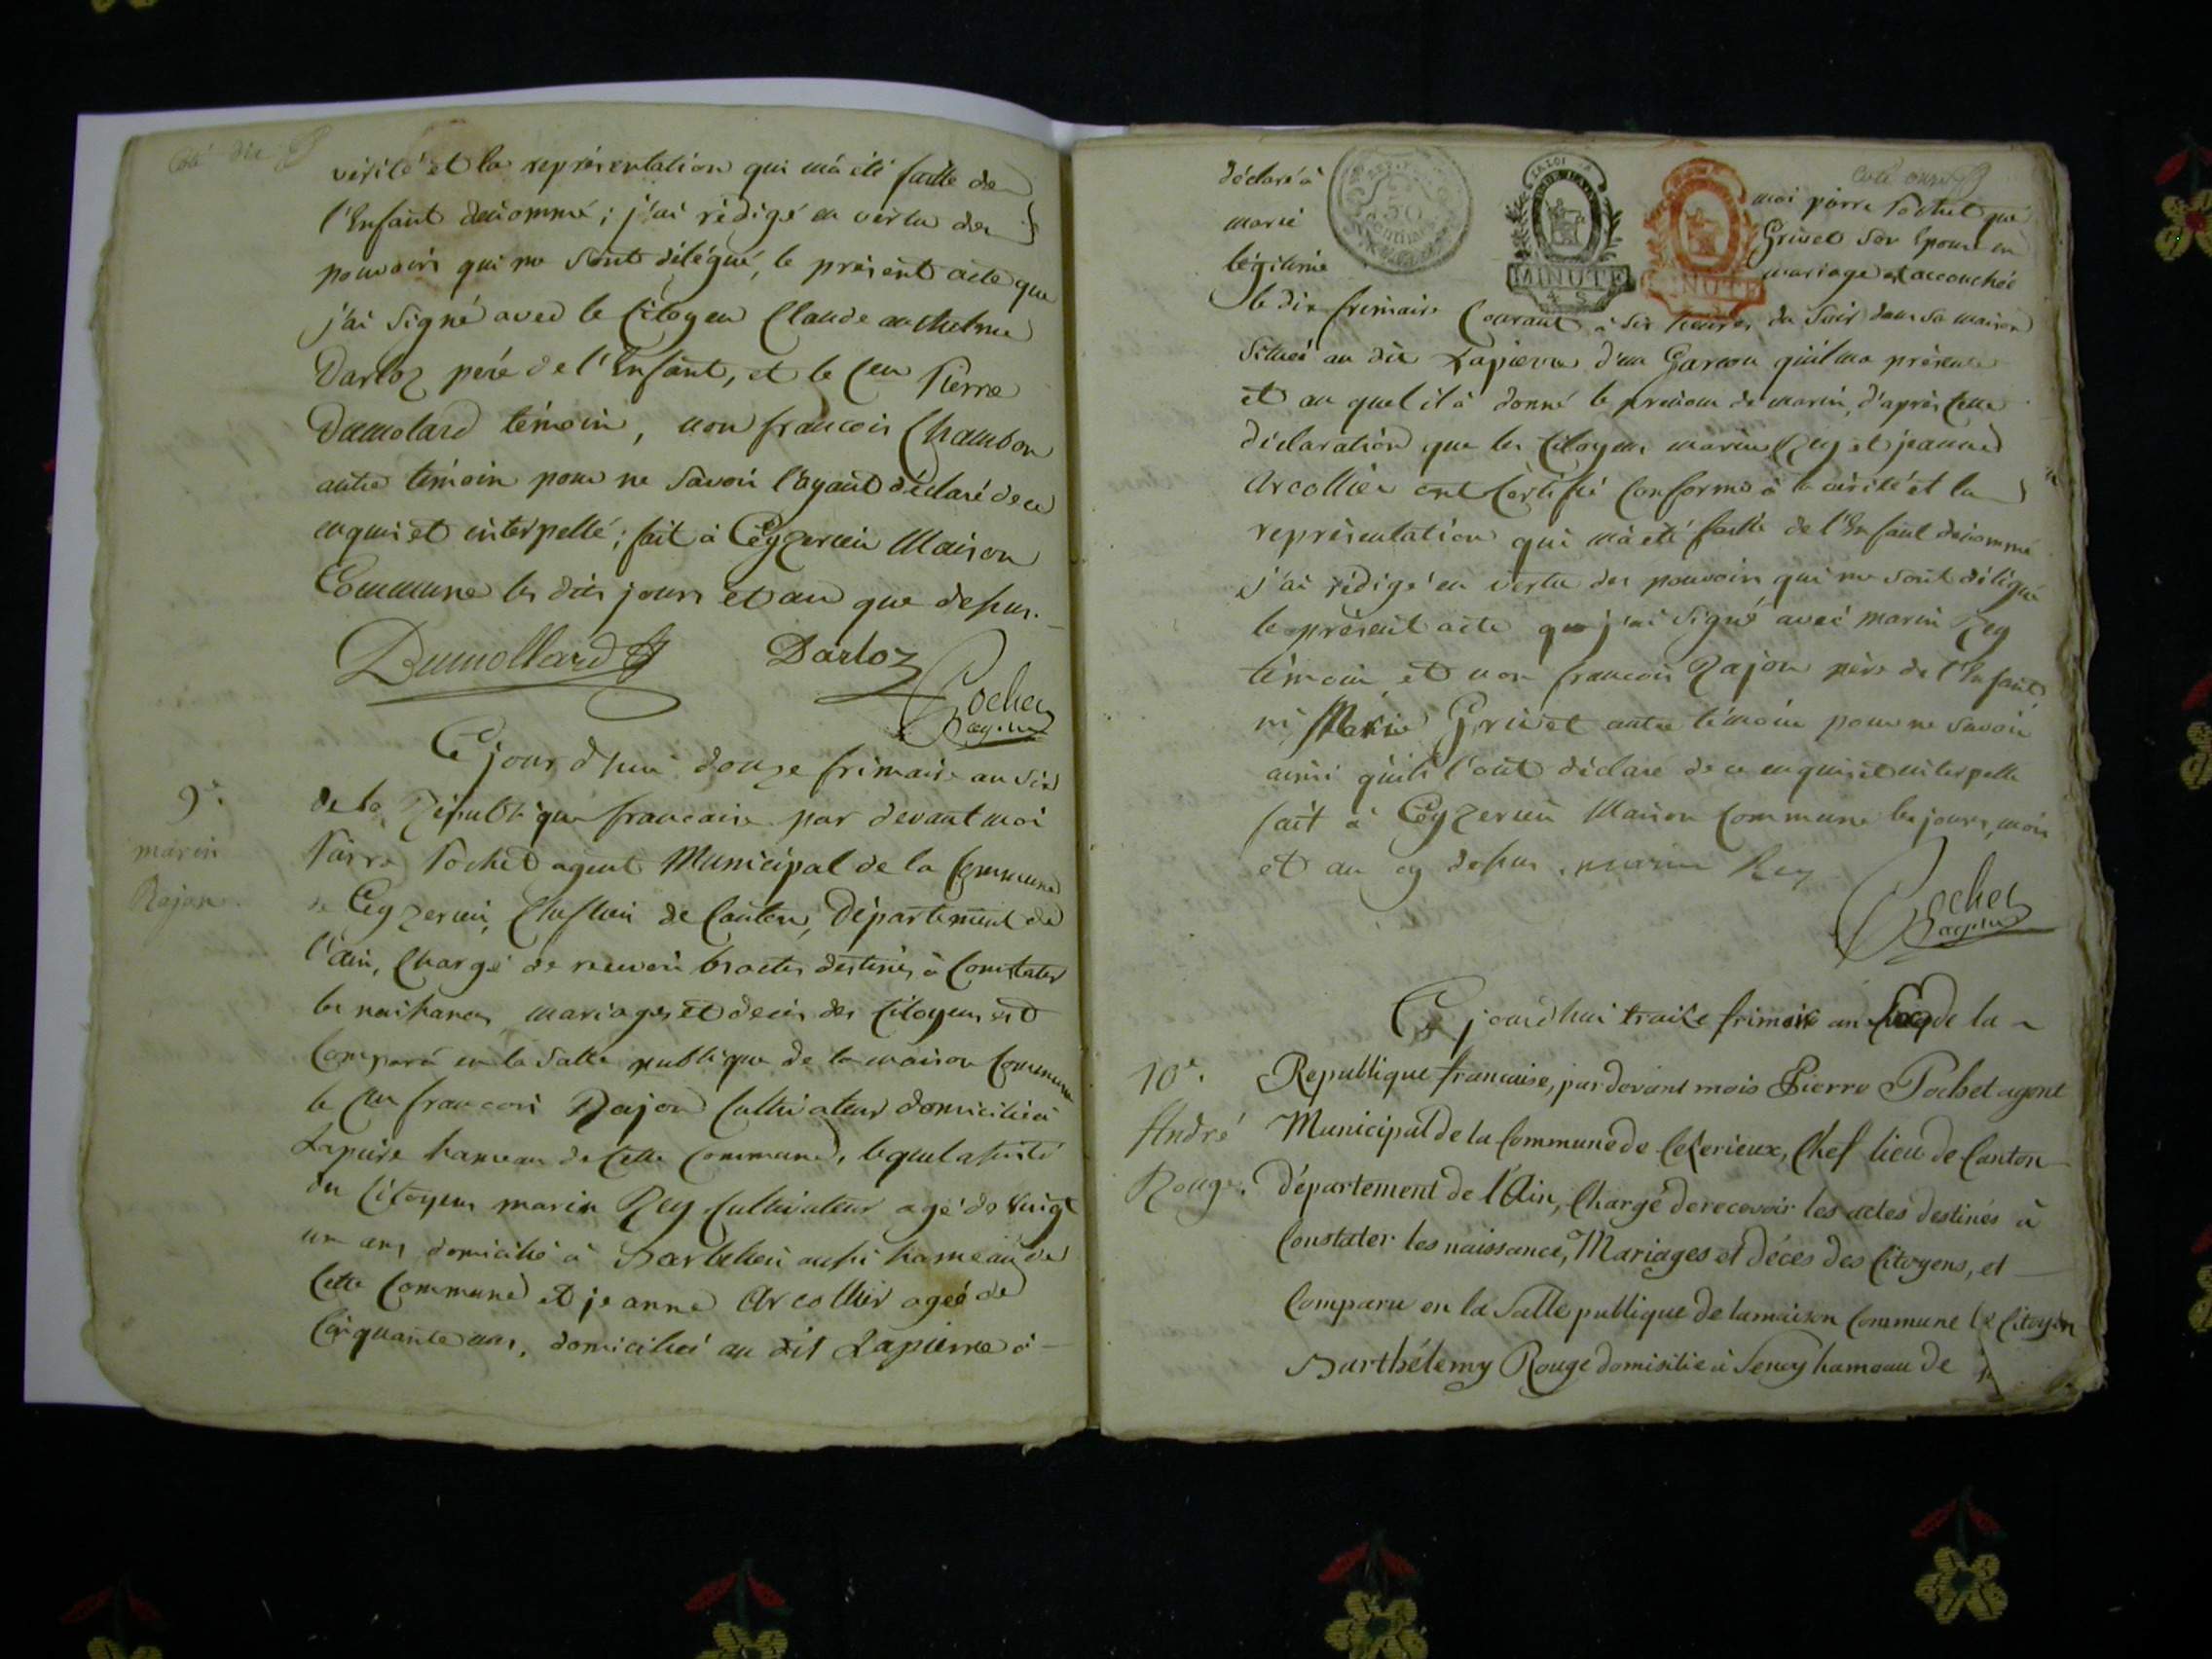 Coté dix
vérité et la représentation qui m'a été faitte de
l'Enfant denommé ; j'ai rédigé en vertu des
pouvoirs qui me sont délégué, le présent acte que
j'ai signé avec le Citoyen Claude anthelme
Darloz pere de l'Enfant, et le Cen Pierre
Dumolard témoin, non francois Chambon
autre témoin pour ne savoir l'ayant déclaré de ce
enquis et interpellé ; fait à Ceyzerieu Maison
Commune les dits jours et an que dessus.
Dumollard Darloz
Pochet
agent
Ce jourd'hui douze frimaire an six
9e.
de la Republique francaise par devant moi
marin
Pierre Pochet agent Municipal de la Commune
Rajon.
de Ceyzerieu, Cheflieu de Canton, Département de
l'ain, Chargé de recevoir les actes destinés à Constater
les naissances, mariages et deces des Citoyens est
Comparu en la Salle publique de la maison Commune
le Cen francois Rajon Cultivateur domicilié à
Lapierre hameau de Cette Commune, lequel assisté
du Citoyens marin Rey Cultivateur agé de vingt
un ans domicilié à Barbilieu aussi hameau de
Cette Commune et jeanne Arcollier agée de
Cinquante ans, domiciliée au dit Lapierre à
Coté onze
déclaré à moi pierre Pochet que
marie Grivet son Epouse en
légitime mariage est accouchée
le dix frimaire Courant à six heures du Soir dans sa maison
Située au dit Lapierre d'un Garcon qu'il ma présenté
et au quel il à donné le prenom de marin, d'après Cette
déclaration que les Citoyens marin Rey et jeanne
Arcollier ont Certifié Conforme à la vérité et la
représentation qui m'a été faitte de l'Enfant denommé
j'ai rédigé en vertu des pouvoirs qui me sont délégué
le présent acte que j'ai signé avec marin Rey
témoin et non francois Rajon père de l'Enfant
ni Marie Grivet autre témoin pour ne savoir
ainsi quils l'ont déclaré de ce enquis et interpellé
fait à Ceyzerieu Maison Commune les jours, mois
et an que dessus. marin Rey
Pochet
agent
Ce jourd'hui traize frimaire an de la
10e.
Republique francaise, par devant mois Pierre Pochet agent
André
Municipal de la Commune de Cezerieux, Chef lieu de Canton
Rouge.
département de l'Ain, Chargé de recevoir les actes destinés à
Constater les naissance, Mariages et déces des Citoyens, et
Comparu en la Salle publique de la maison Commune le Citoyen
Barthélemy Rouge domisilié à Senoy hameau de
50
Centimes
LA LOI
MINUTE
4 S
MINUTE